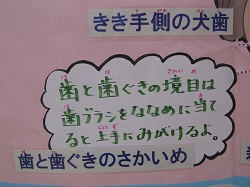 きき手側の犬歯
歯と歯ぐきの境目は
歯ブラシをななめに当て
ると上手にみがけるよ。
歯と歯ぐきのさかいめ